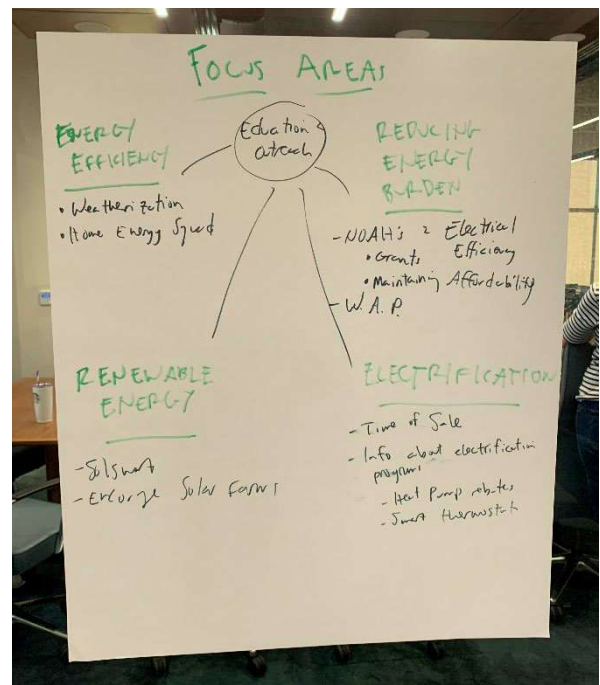 FOCUS AREAS
Eduation &
outreach
ENERGY
EFFICIENCY
• Weatherization
• Home Energy Squad
REDUCING
ENERGY
BURDEN
- NOAH's & Electrical
Efficiency
• Grants
• Maintaining Affordability
- W. A. P.
RENEWABLE
ENERGY
- Solsmart
- Encorge Solar Farms
ELECTRIFICATION
- Time of Sale
- Info about electrification
programs
- Heat Pump rebates
- Smart thermostat